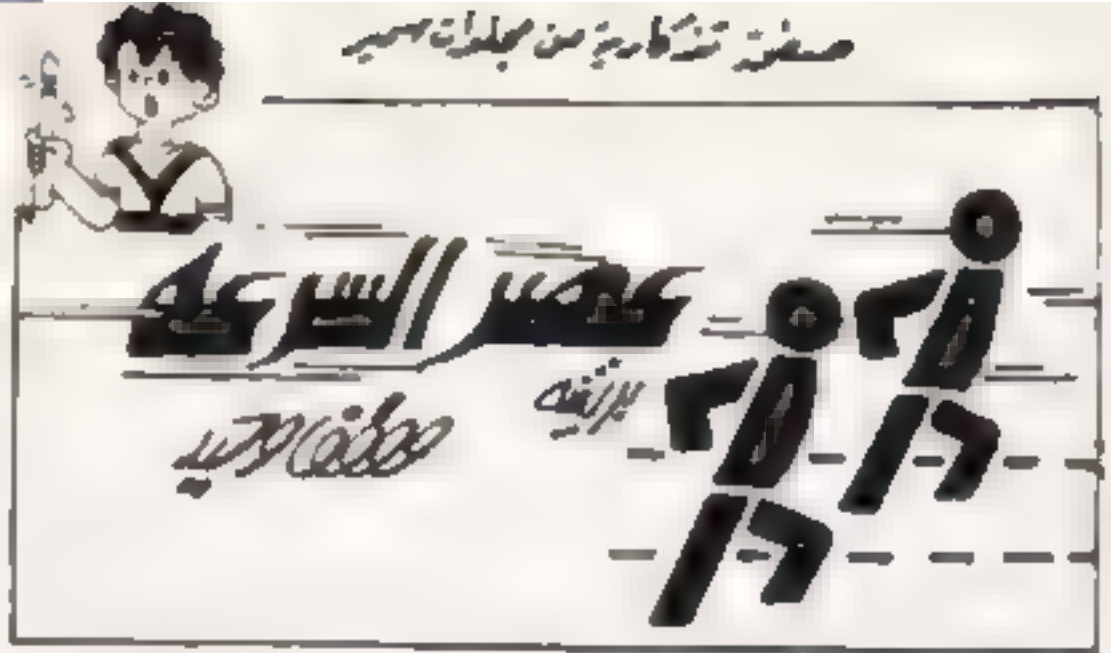 صفحة تذكارية من مجلدات سمير
عصر السرعة
بريشة
مصطفى وحيد